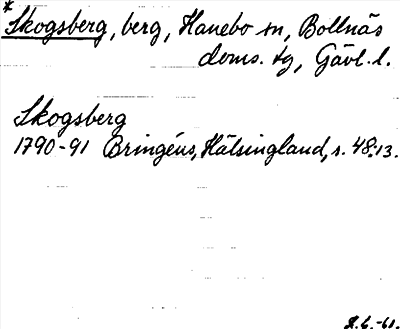 * Skogsberg, berg, Hanebo sn, Bollnäs
doms. tg, Gävl. l.
Skogsberg
1790-91 Bringéus, Hälsingland, s. 48:13.